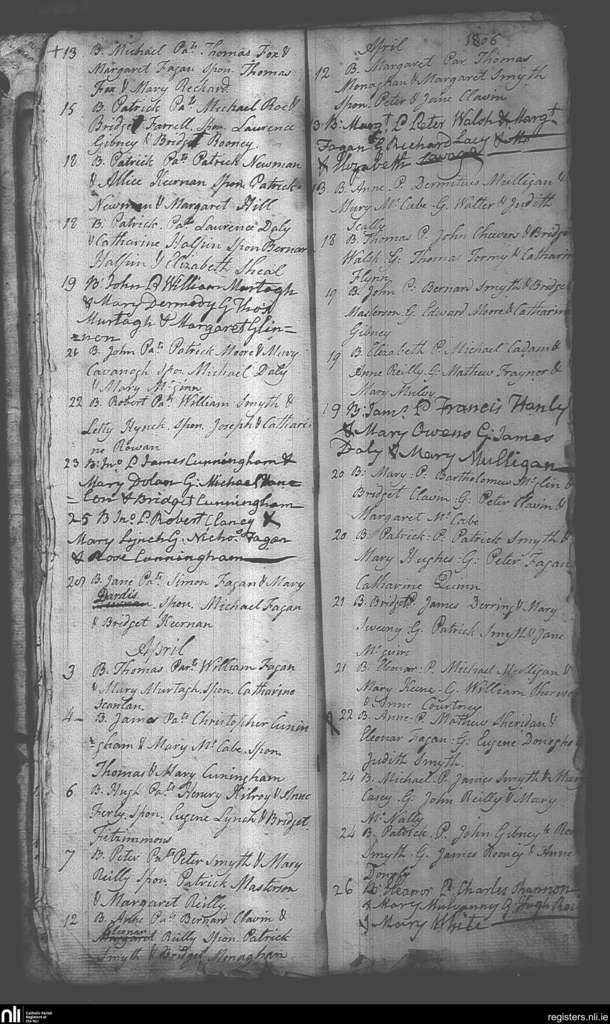 +13 B. Michael Pats. Thomas Fox &
Margaret Fagan Spon. Thomas
Fox & Mary Rechard
15 B. Patrick Pats. Michael Roe &
Bridget Farrell Spon. Lawrence
Gibney & Bridget Rooney
18 B. Patrick Pats Patrick Newman
& Allice Keernan Spon. Patrick
Newman & Margaret Hill
18 B. Patrick. Pats Lawrence Daly
& Catharine Halfpin Spon Bernar
Halfpin & Elizabeth Sheal
19 B. John P. William Murtagh
& Mary Dermody G Thos
Murtagh & Margaret Glin=
=non
21 B. John Pats. Patrick Moore & Mary
Cavanogh Spo. Michael Daly
& Mary McGinn
22 B. Robert Pats William Smyth &
Letty Hynck Spon. Joseph & Cathari
ne Rowan
23 B. Jno. P James Cunningham &
Mary Dolan G. Michael
& Bridget Cunningham
25 B Jno. P. Robert Clancy &
Mary Lynch G. Nichos. Fagan
& Rose Cunningham
B. Jane Pats. Simon Fagan & Mary
Dardis
Spon. Michael Fagan
& Bridget Keernan
April
3 B. Thomas Pars. William Fagan
& Mary Murtagh Spon. Catharine
Scanlan
4 B. James Pats Christopher Cunin
=gham & Mary McCabe Spon.
Thomas & Mary Cuningham
6 B. Hugh Pats. Henery Kilroy & Anne
Ferly Spon. Eugene Lynch & Bridget
Fitzimmons
7 B. Peter Pats Peter Smyth & Mary
Reilly Spon. Patrick Masterson
& Margaret Reilly
12 B. Anne Pats. Bernard Clavin &
Eleonor
Margaret Reilly Spon. Patrick
Smyth & Bridget Monaghan
April 1806
12 B. Margaret Par Thomas
Monaghan & Margaret Smyth
Spon. Peter & Jane Clavin
13 B. Margt P Peter Walsh & Margt
Fagan G Richard Lacy &
& Elizabeth
13 B. Anne. P. Dermitius Mulligan &
Mary McCabe G. Walter & Judith
Scally
18 B. Thomas P. John Cheevers & Bridge
Walsh G: Thomas Tormy & Catharin
Flynn
19 B. John P: Bernard Smyth & Bridge
Masterson G. Edward Moore & Catharin
Gibney
19 B. Elizabeth P. Michael Cadam &
Anne Reilly G. Mathew Traynor &
Mary
19 B. Jams. P Francis Hanly
& Mary Owens G. James
Daly & Mary Mulligan
20 B. Mary. P. Bartholomew McGlin &
Bridget Clavin G. Peter Clavin &
Margaret McCabe
20 B. Patrick. P. Patrick Smyth &
Mary Hughes G: Peter Fagan
Catharine Quinn
21 B. Bridget P. James Derring & Mary
Sweeny G. Patrick Smyth & Jane
McGuire
21 B. Elenar. P. Michael Mulligan &
Mary Keene. G. William
& Anne Courtney
22 B. Anne. P. Mathew Sheridan &
Eleonar Fagan. G: Eugene Donogho
Judith Smyth
24 B. Michael P. James Smyth & Mary
Casey G. John Reilly & Mary
McNally
24 B. Patrick. P. John Gibney &
Smyth. G. James Rooney & Anne
26 B. Eleanor P. Charles Shannon
& Mary Mulvanny G Hugh
& Mary White
nli
Catholic Parish
Registers at
the NLI
registers.nli.ie